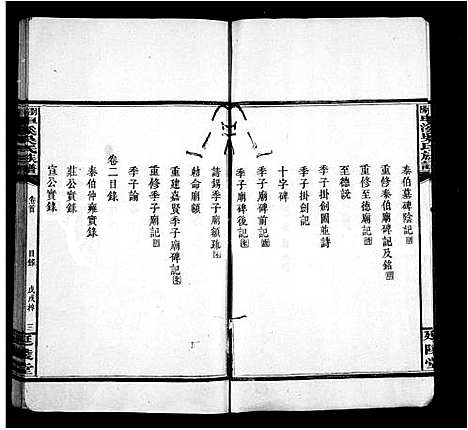 泰伯墓碑陰記
重修泰伯廟碑記及銘
重修至德廟記
至德說
季子掛劍圖並詩
季子掛劍記
十字碑
季子廟碑前記
季子廟碑後記
請錫季子廟額疏
勅命廟額
重建嘉賢季子廟碑記
重修季子廟記
季子論
卷二目錄
泰伯仲雍實錄
莊公實錄
宣公實錄
申溪吳氏族譜
卷首
目錄
戊戌梓
三
延陵堂